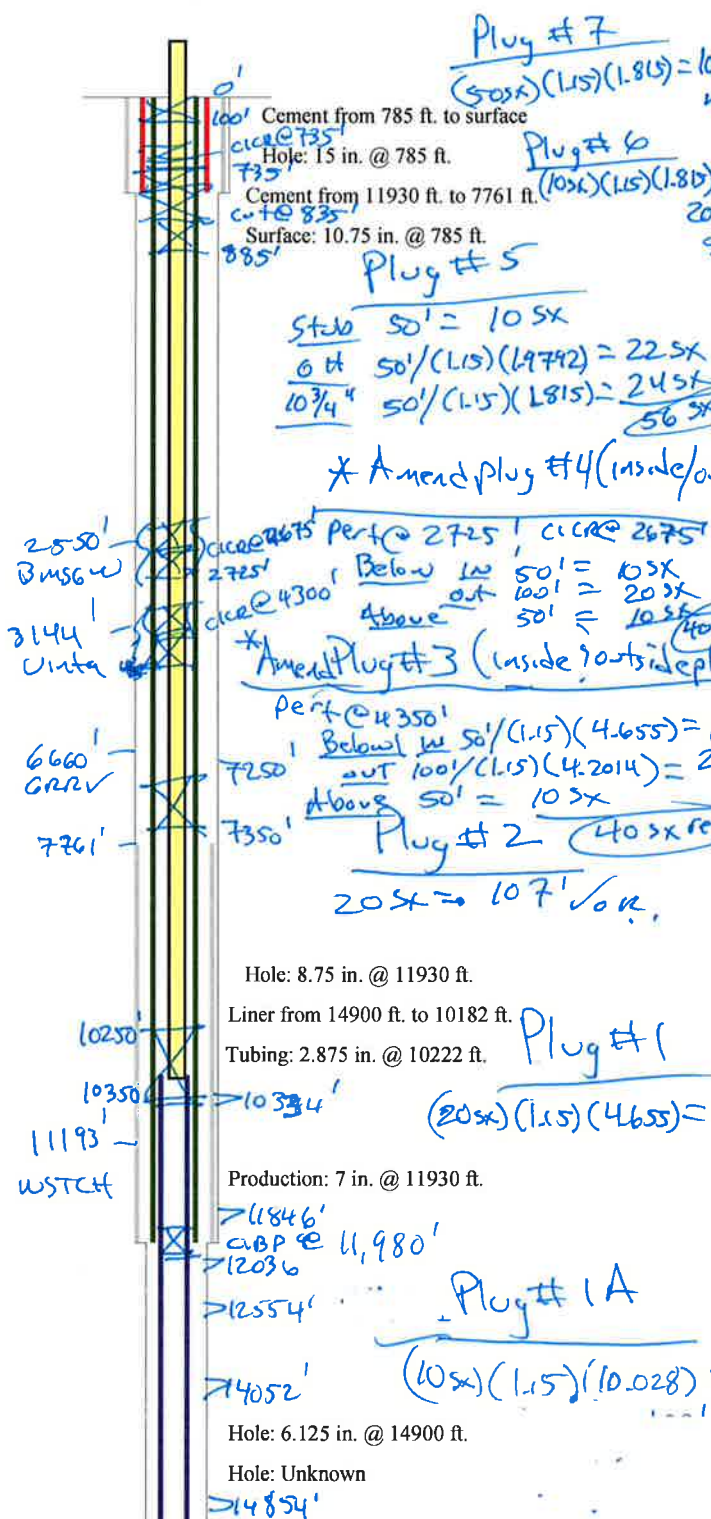 Plug #7
(50sx)(1.15)(1.815) = 10
0'
100' Cement from 785 ft. to surface
CICR@735'
Hole: 15 in. @ 785 ft.
735'
Plug #6
(10sx)(1.15)(1.815)
20
Cement from 11930 ft. to 7761 ft.
cut@835'
Surface: 10.75 in. @ 785 ft.
885'
Plug #5
Stub 50' = 10 sx
OH 50'/(1.15)(1.9792) = 22 sx
10 3/4" 50'/(1.15)(1.815) = 24 sx
56 sx
* Amend plug #4 (inside/ou
2550'
BMSGW
CICR@2675' Perf@ 2725' CICR@ 2675'
2725'
Below IN 50' = 10 sx
out 100' = 20 sx
Above 50' = 10 sx
(40
CICR@4300'
3144'
Uinta
* Amend Plug #3 (inside/outside pl
Perf@4350'
Below IN 50'/(1.15)(4.655) =
OUT 100'/(1.15)(4.2014) = 2
Above 50' = 10 sx
40 sx re
6660'
GRRV
7250'
7350'
7761'
Plug #2
20 sx = 107' ✓ OK.
Hole: 8.75 in. @ 11930 ft.
Liner from 14900 ft. to 10182 ft.
Tubing: 2.875 in. @ 10222 ft.
10250'
10350
>10334'
Plug #1
(20sx)(1.15)(4.655) =
11193'
WSTCH
Production: 7 in. @ 11930 ft.
>11846'
CIBP @ 11,980'
>12036
>12554'
Plug #1A
(10sx)(1.15)(10.028)
>14052'
Hole: 6.125 in. @ 14900 ft.
Hole: Unknown
>14854'